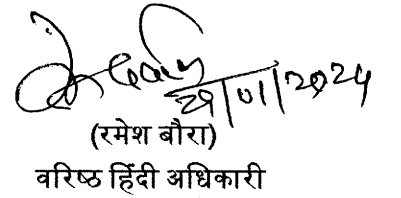 29/01/2024
(रमेश बौरा)
वरिष्ठ हिंदी अधिकारी